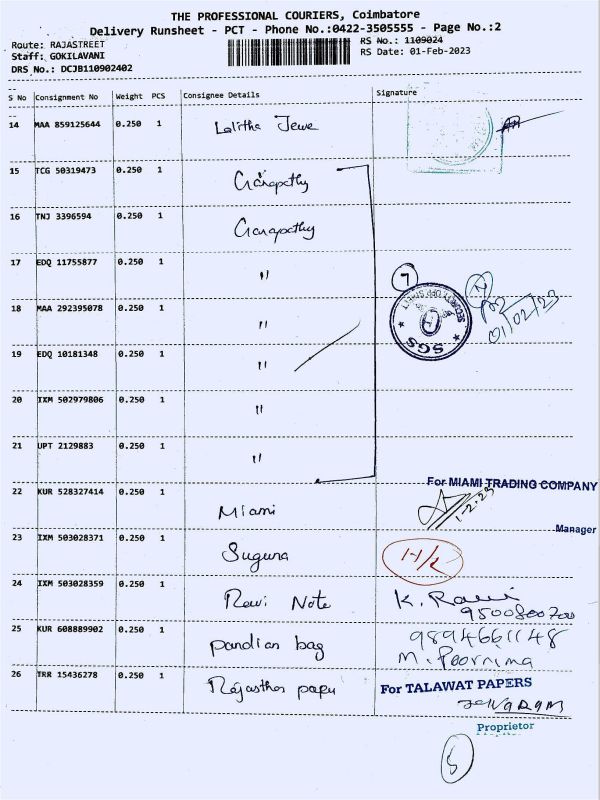 THE PROFESSIONAL COURIERS, Coimbatore
Delivery Runsheet - PCT - Phone No.:0422-3505555 - Page No.:2
Route: RAJASTREET
RS No.: 1109024
Staff: GOKILAVANI
RS Date: 01-Feb-2023
DRS No.: DCJB110902402
S No Consignment No Weight PCS Consignee Details Signature
14 MAA 859125644 0.250 1 Lalitha Jewe
15 TCG 50319473 0.250 1 Ganapathy
16 TNJ 3396594 0.250 1 Ganapathy
17 EDQ 11755877 0.250 1 "
7
SGS
01/02/23
18 MAA 292395078 0.250 1 "
19 EDQ 10181348 0.250 1 "
20 IXM 502979806 0.250 1 "
21 UPT 2129883 0.250 1 "
For MIAMI TRADING COMPANY
22 KUR 528327414 0.250 1 Miami
1-2-23
Manager
23 IXM 503028371 0.250 1 Suguna H/L
24 IXM 503028359 0.250 1 Ravi Note K. Ravi
9500800700
25 KUR 608889902 0.250 1 pandian bag 9894661148
M. Poornima
26 TRR 15436278 0.250 1 Rajasthan paper
For TALAWAT PAPERS
Proprietor
5